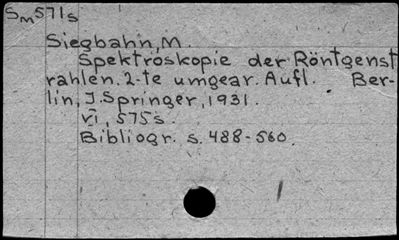 Sm571s
Siegbahn, M.
Spektroskopie der Röntgenst
rahlen. 2-te umgear. Aufl. Ber-
lin, J. Springer, 1931.
VI, 575 s.
Bibliogr. s. 488-560.